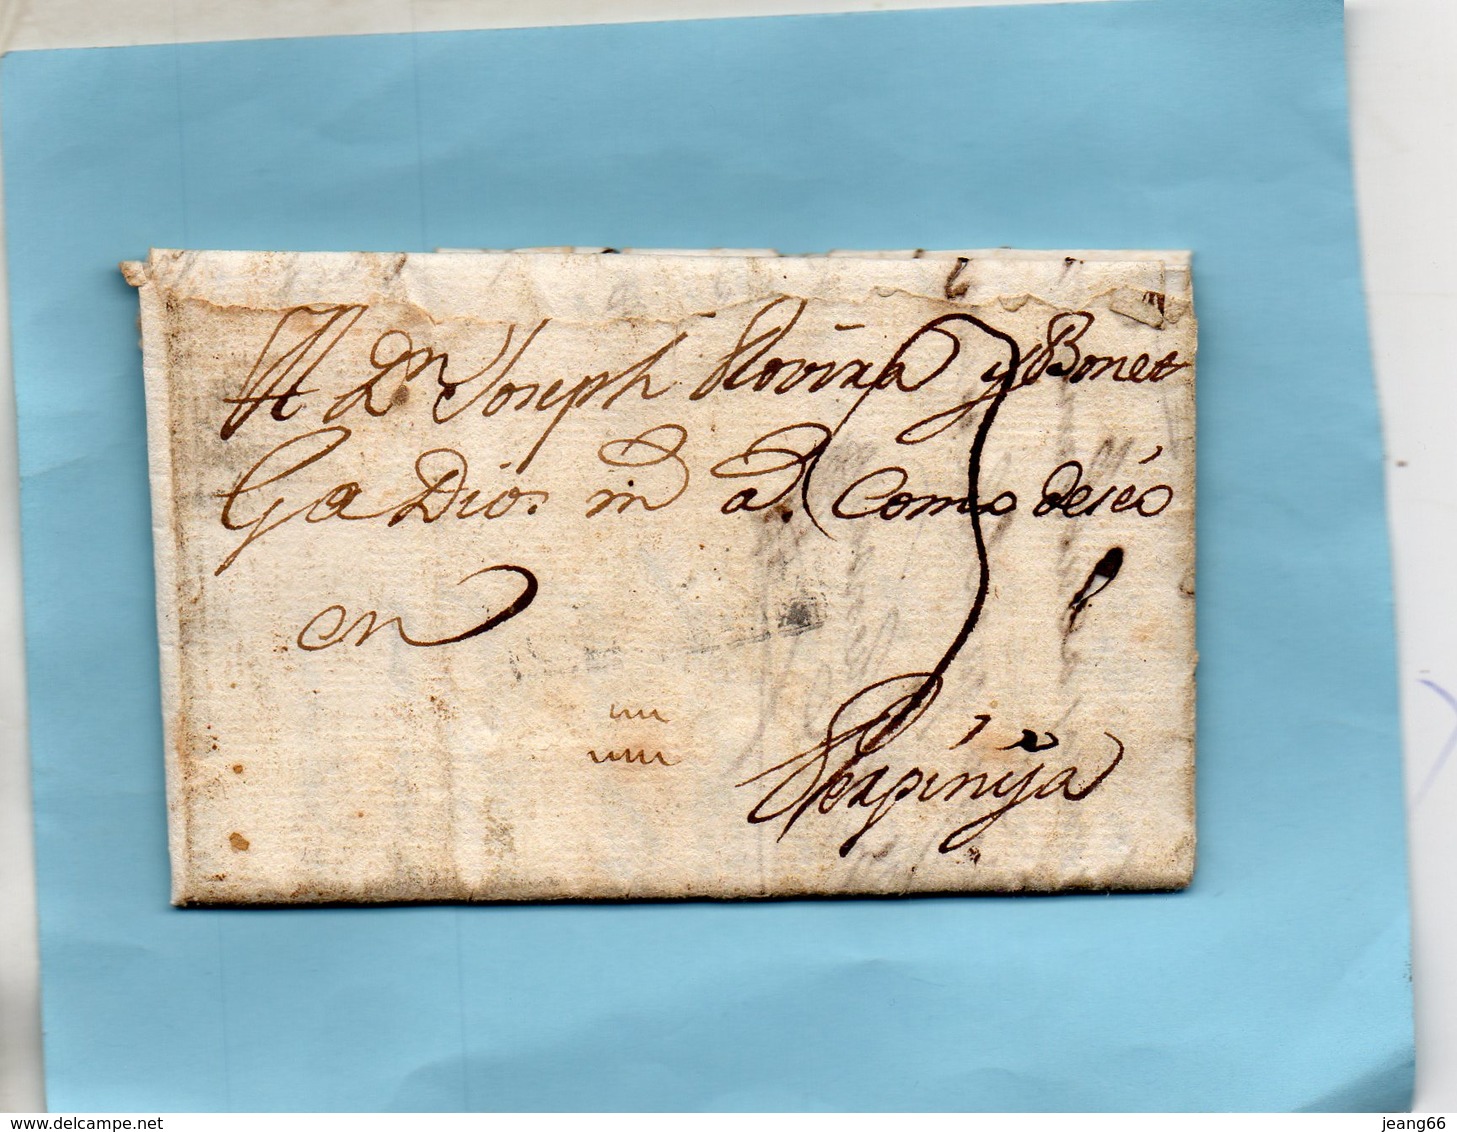 A Dn Joseph Rovira y Bonet
Ga Dios m a. Como deseo
en
Perpiniya
delcampe.net
jeang66